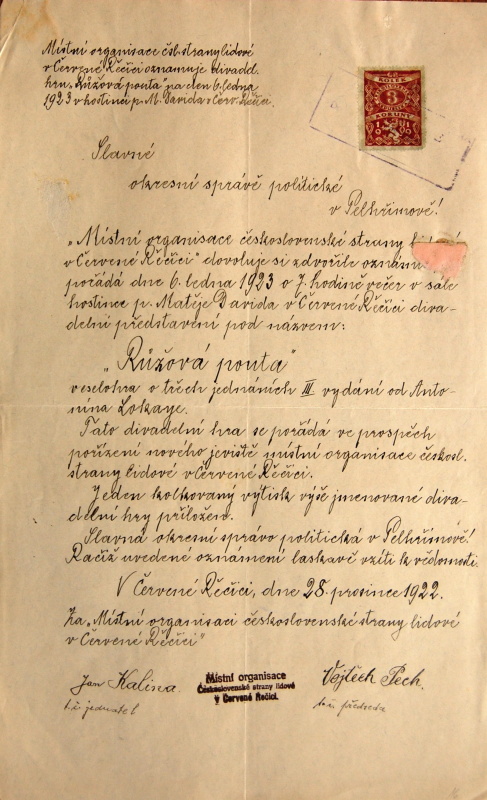 Místní organisace čsl. strany lidové
v Červené Řečici oznamuje divadel.
hru „Růžová pouta na den 6. ledna
1923 v hostinci p. M. Davida v Červ. Řečici.
KOLEK
3
KORUNY
19 19
Slavné
okresní správě politické
v Pelhřimově!
„Místní organisace československé strany
v Červené Řečici" dovoluje si zdvořile oznámi
pořádá dne 6. ledna 1923 o 7. hodině večer v sále
hostince p. Matěje Davida v Červené Řečici diva-
delní představení pod názvem:
„Růžová pouta"
veselohra o třech jednáních III vydání od Anto-
nína Lokaye.
Tato divadelní hra se pořádá ve prospěch
pořízení nového jeviště místní organisace českosl.
strany lidové v Červené Řečici.
Jeden kolkovaný výtisk výše jmenované diva-
delní hry přiložen.
Slavná okresní správo politická v Pelhřimově!
Račiž uvedené oznámení laskavě vzíti k vědomosti.
V Červené Řečici, dne 28. prosince 1922.
Za „Místní organisaci československé strany lidové
v Červené Řečici"
Jan Kalina.
t. č. jednatel
Místní organisace
Československé strany lidové
v Červené Řečici.
Vojtěch Pech.
t. č. předseda